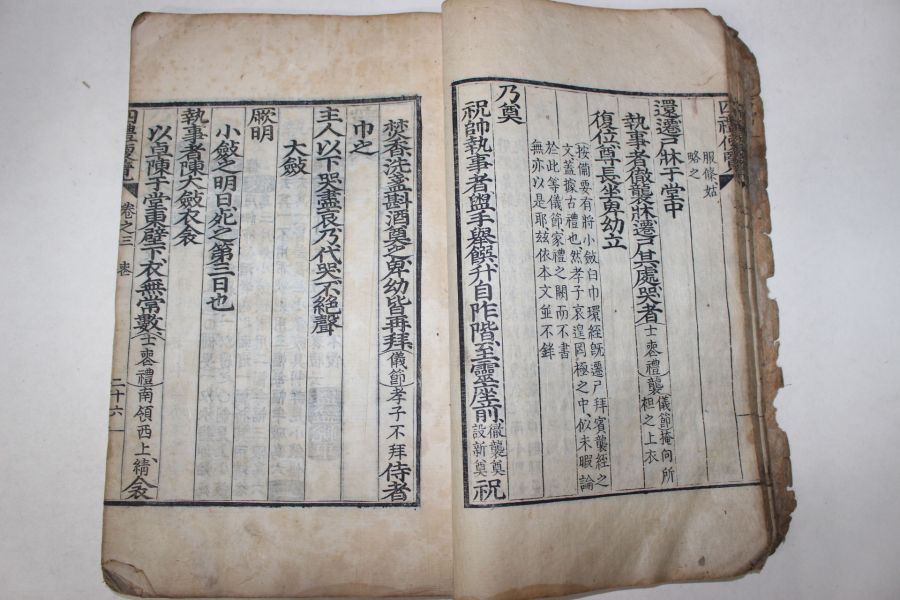 服條姑
略之
還遷尸牀于堂中
執事者徹襲牀遷尸其處哭者士喪禮襲儀節掩向所
袒之上衣
復位尊長坐卑幼立
按備要有將小斂白巾環絰旣遷尸拜賓襲絰之
文蓋據古禮也然孝子哀遑罔極之中似未暇論
於此等儀節家禮之闕而不書
無亦以是耶玆依本文並不錄
乃奠
祝帥執事者盥手舉饌升自阼階至靈座前徹襲奠
設新奠祝
焚香洗盞斟酒奠之卑幼皆再拜儀節孝子不拜侍者
巾之
主人以下哭盡哀乃代哭不絕聲
大斂
厥明
小斂之明日死之第三日也
執事者陳大斂衣衾
以卓陳于堂東壁下衣無常數士喪禮南領西上綪衾
四禮便覽 卷之三 喪 二十六